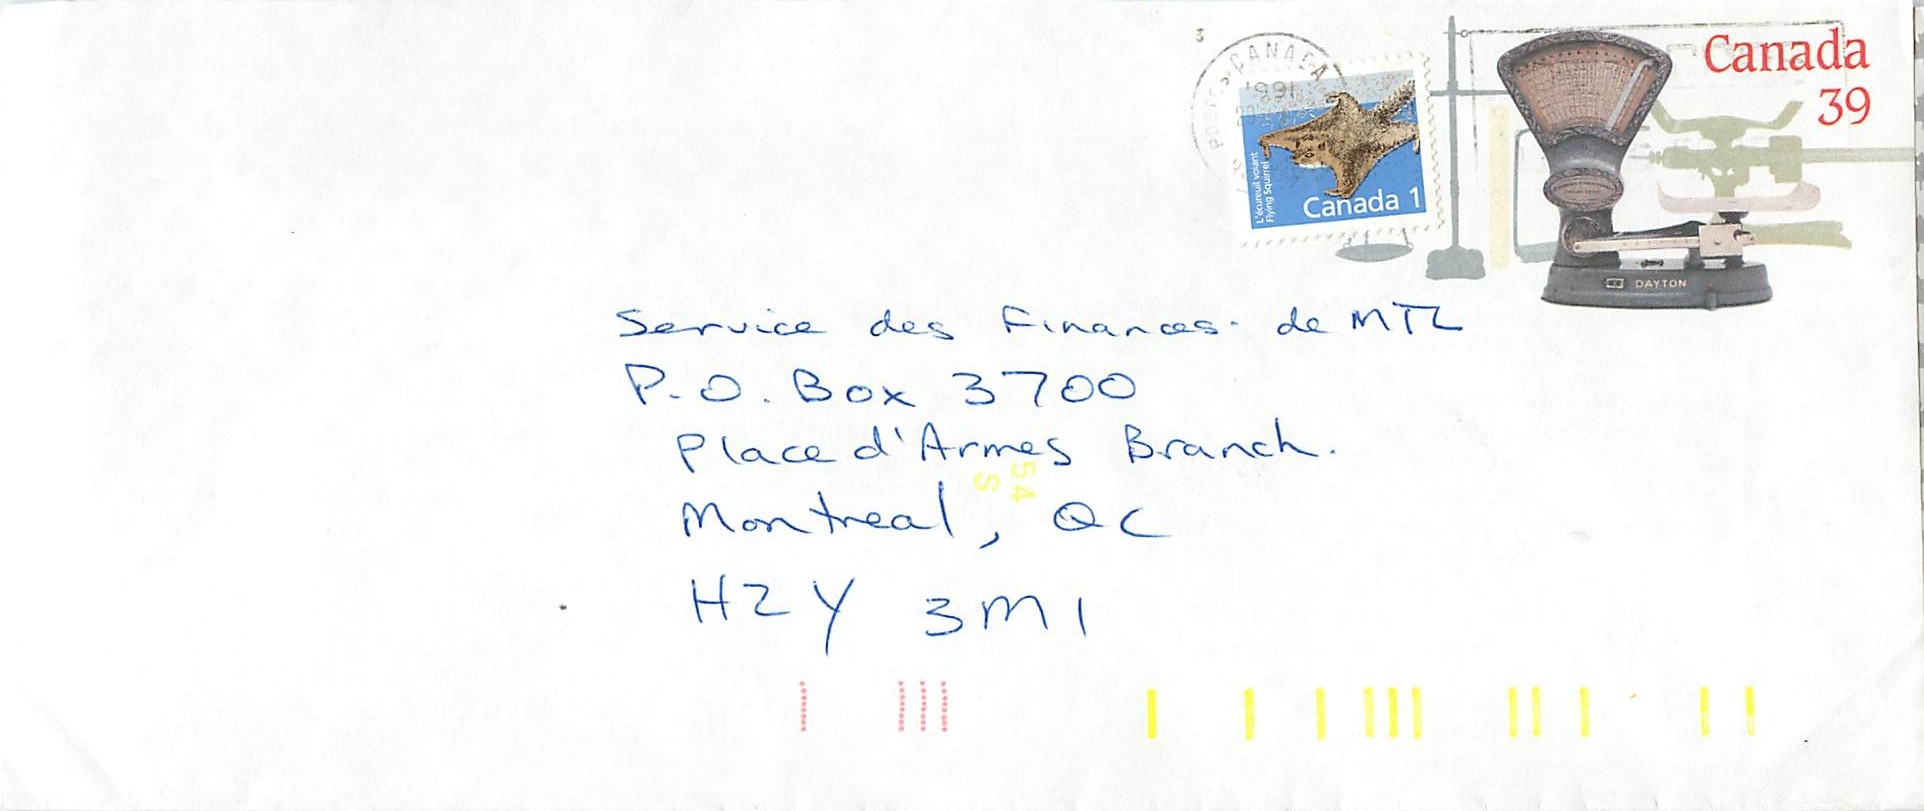 3
POSTES CANADA
1991
L'écureuil volant
Flying Squirrel
Canada 1
Canada
39
DAYTON
Service des Finances. de MTL
P.O. Box 3700
Place d'Armes Branch.
54
S
Montreal, QC
H2Y 3M1